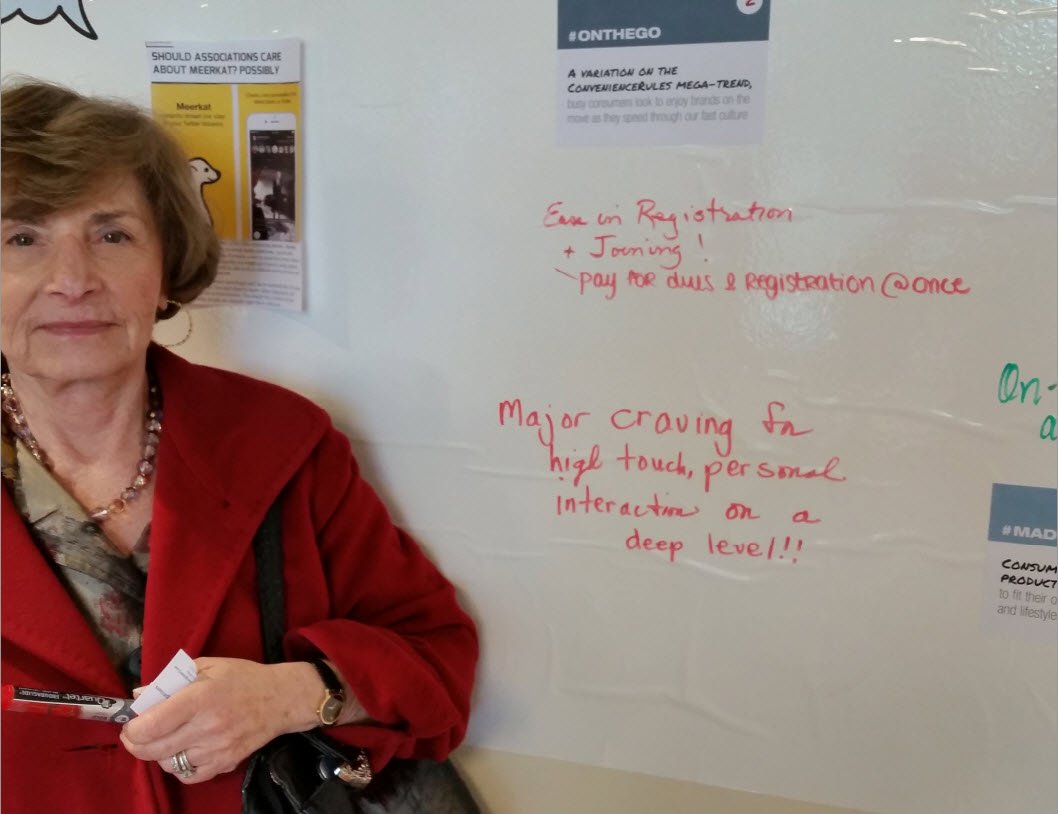 2
#ONTHEGO
A VARIATION ON THE
CONVENIENCERULES MEGA-TREND,
busy consumers look to enjoy brands on the
move as they speed through our fast culture
SHOULD ASSOCIATIONS CARE
ABOUT MEERKAT? POSSIBLY
Meerkat
Ease in Registration
+ Joining!
pay for dues & Registration @ once
Major craving for
high touch, personal
interaction on a
deep level!!
On-
a
#MAD
CONSUM
PRODUCT
to fit their o
and lifestyle
Quartet ENDURAGLIDE